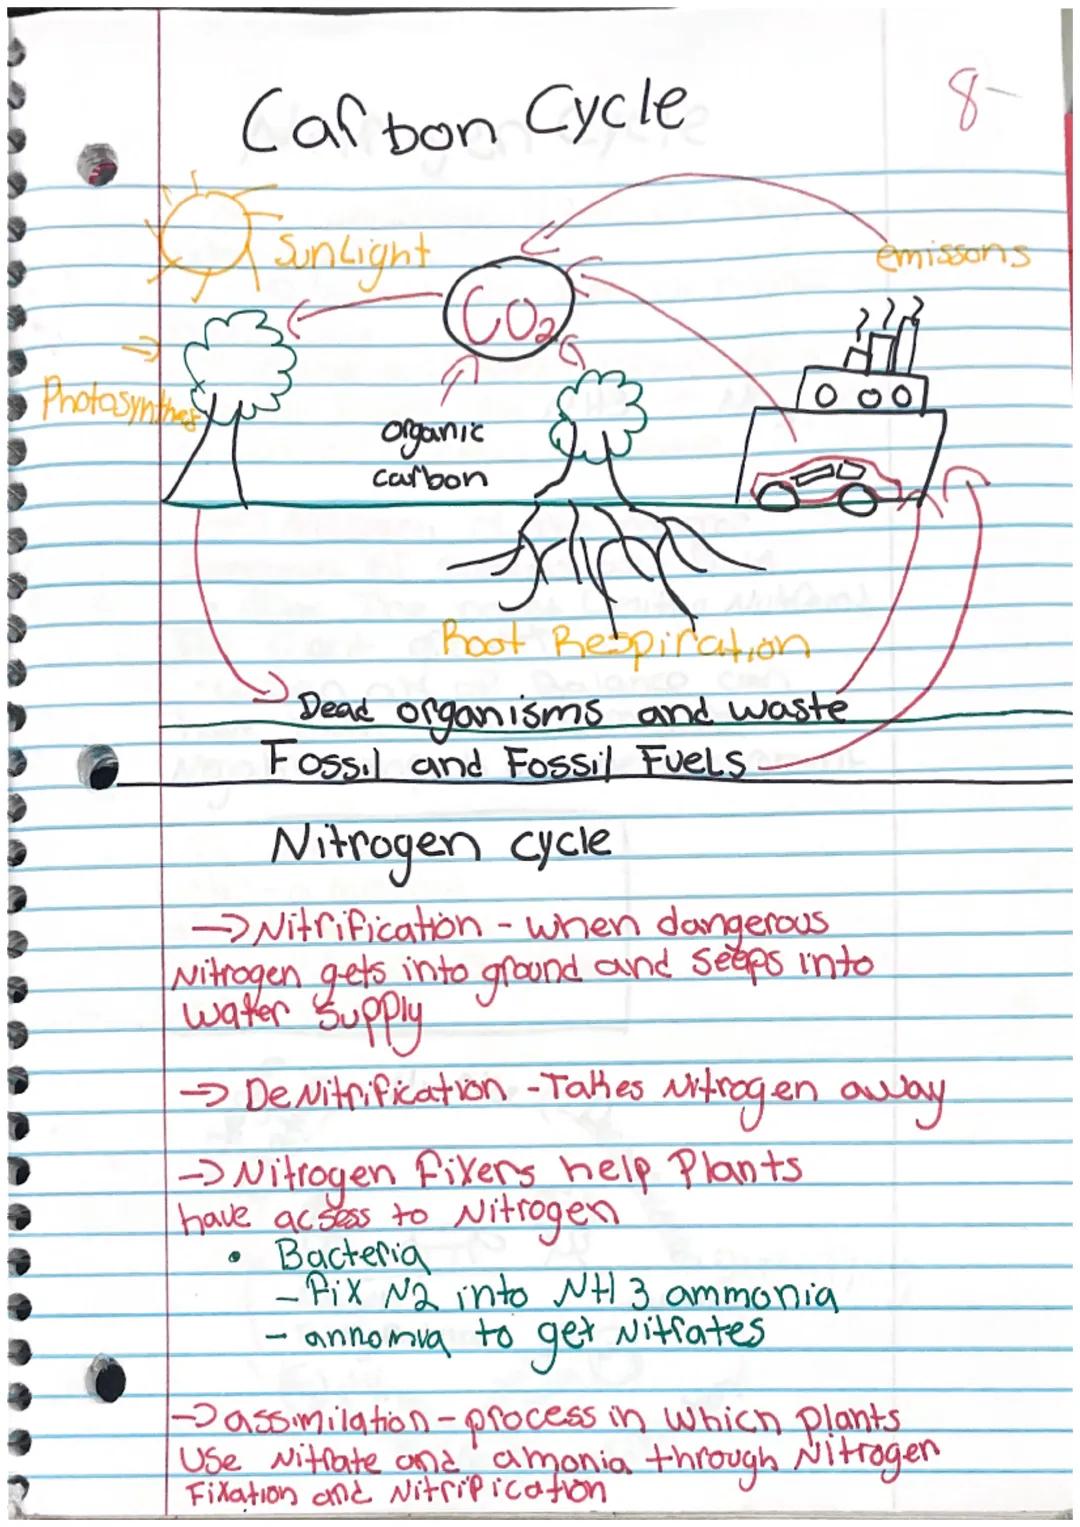 Carbon Cycle
8-
SunLight
emissons
CO2
Photosynthes
organic
carbon
Root Respiration
Dead organisms and waste
Fossil and Fossil Fuels
Nitrogen cycle
→ Nitrification - when dangerous
Nitrogen gets into ground and seeps into
water supply
→ DeNitrification - Takes Nitrogen away
→ Nitrogen Fixers help Plants
have acsess to Nitrogen
• Bacteria
- Fix N2 into NH3 ammonia
- annomva to get Nitrates
→ assimilation - process in which plants
Use Nitrate and amonia through Nitrogen
Fixation and Nitrification